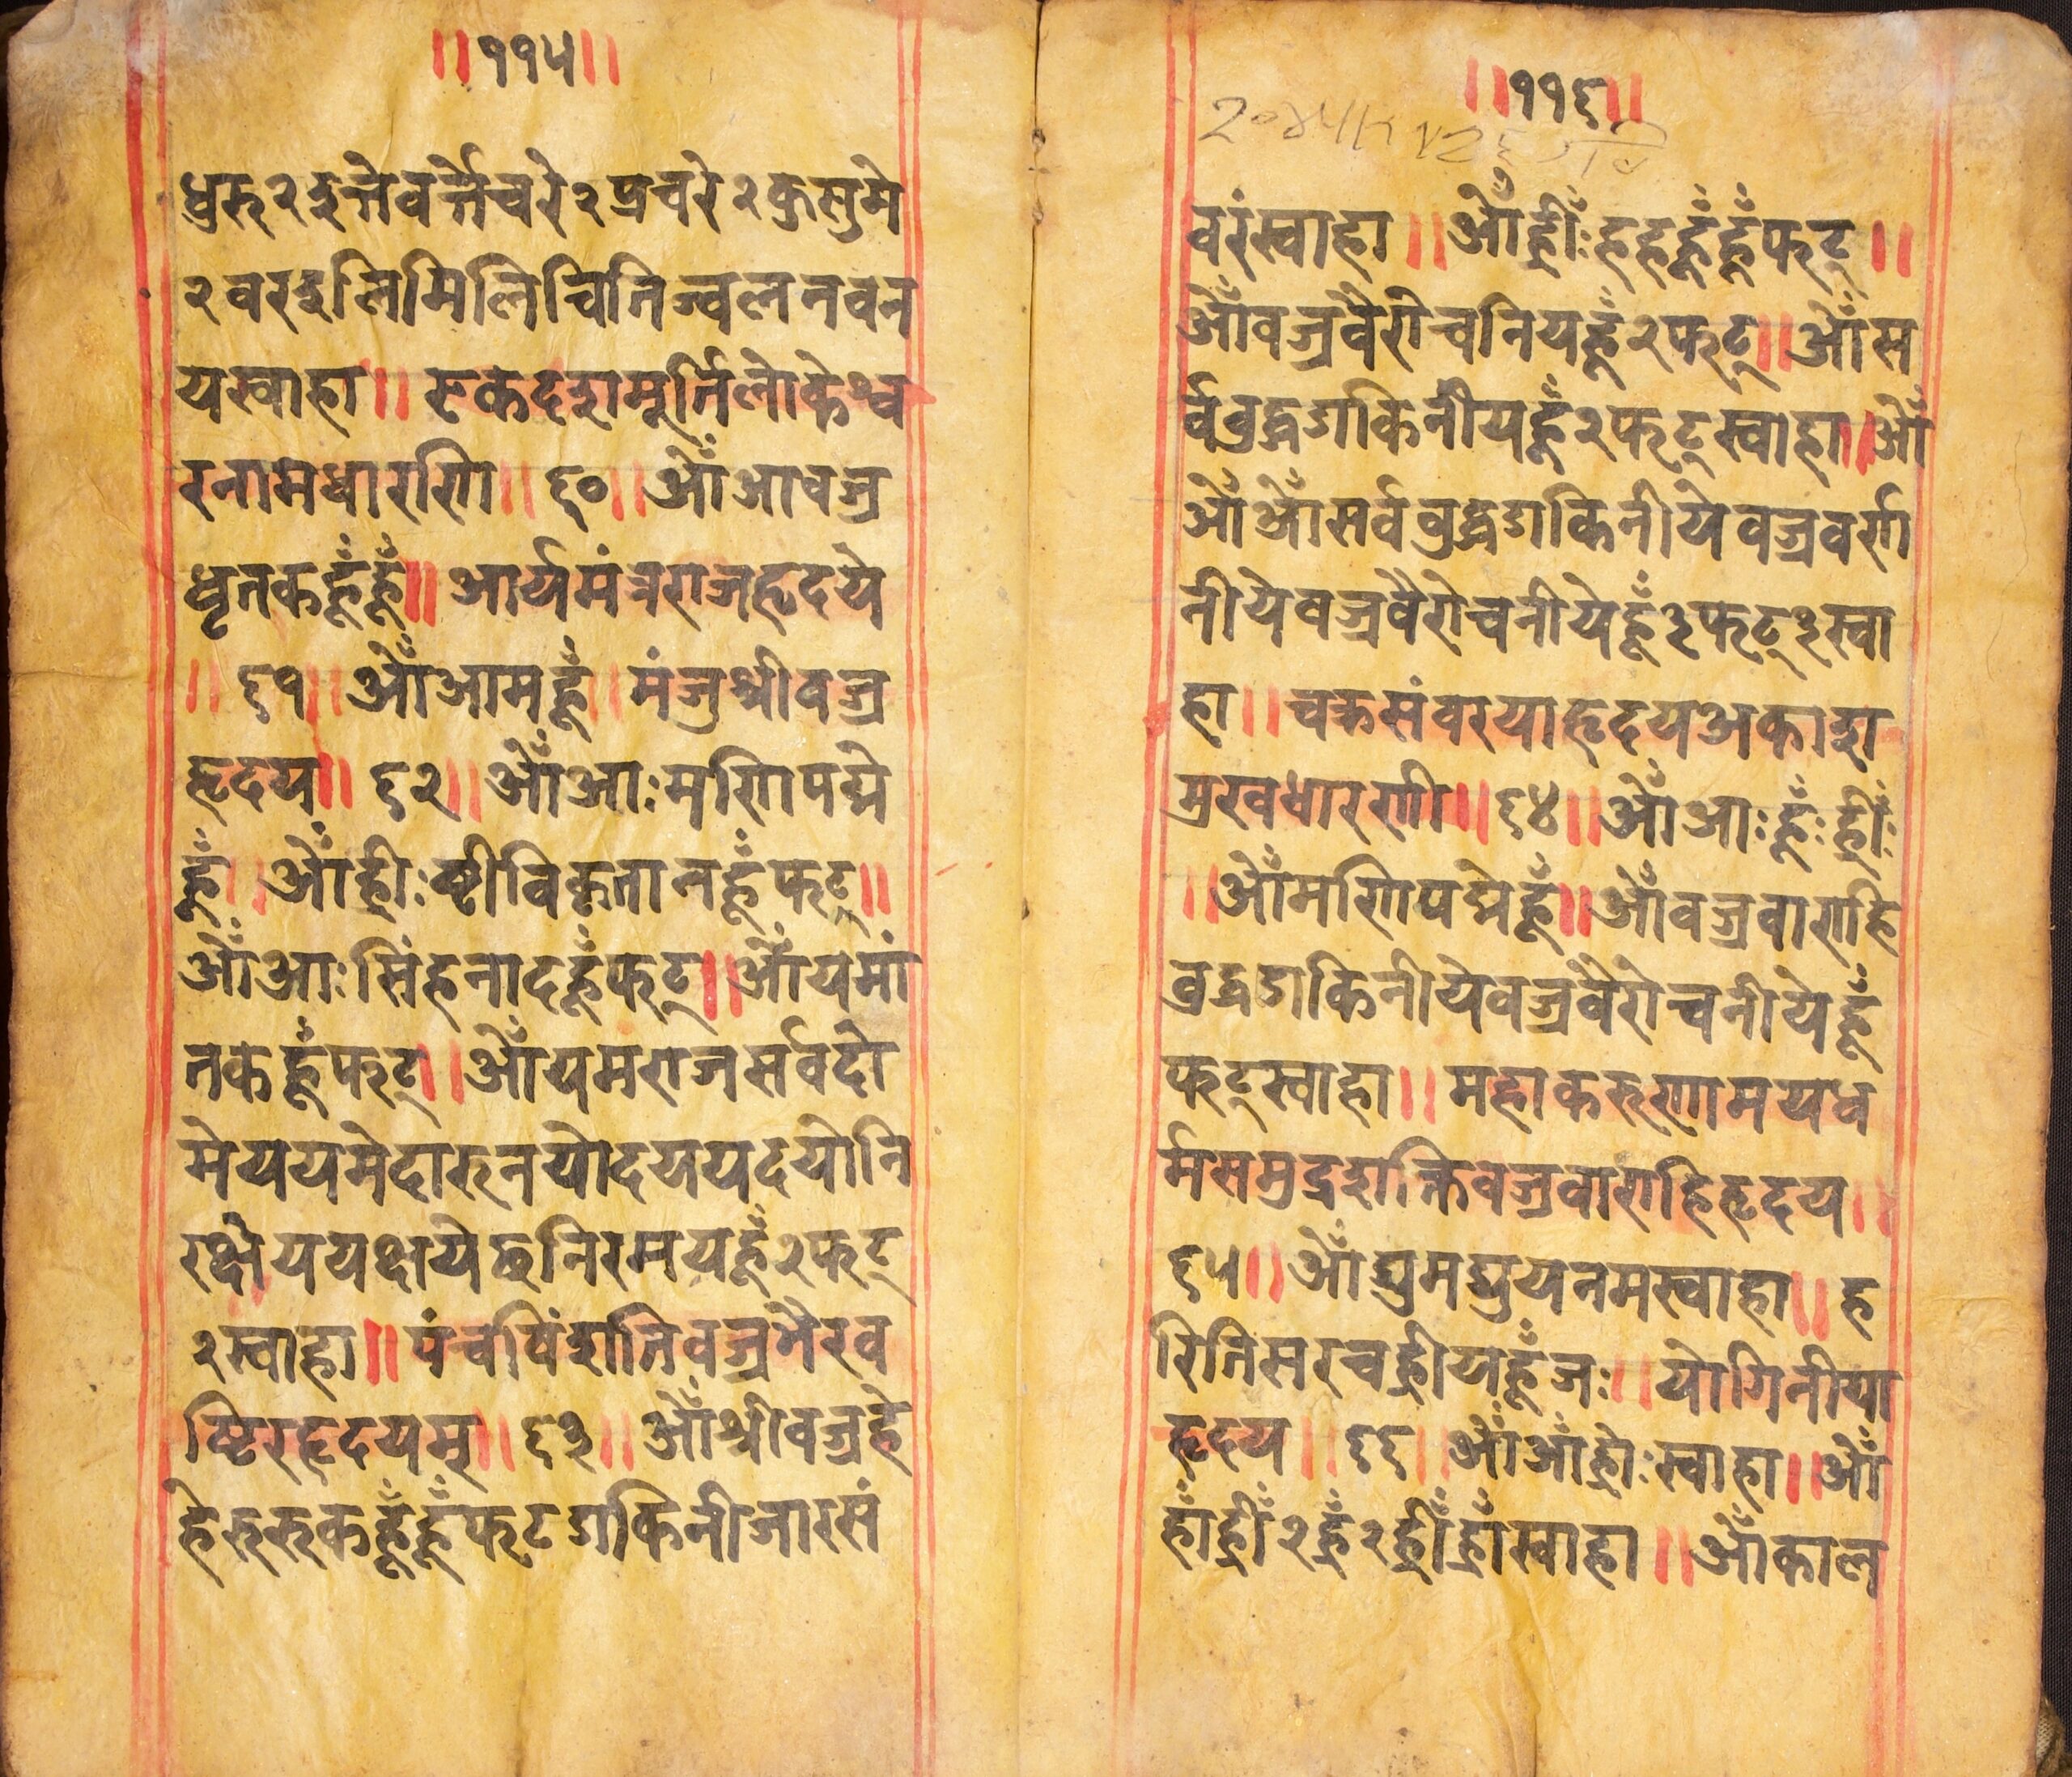 ॥११५॥
धुरु२इत्तेवर्त्तेचरे२प्रचरे२कुसुमे
२वरइलिमिलिचितिज्वलनवन
यस्वाहा॥एकदशमूर्तिलोकेश्व
रनामधारणि॥६०॥ओँआवज्र
धृतकहूँहूँ॥आर्यमंत्रराजहृदये
॥६१॥ओँआमहूँ॥मंजुश्रीवज्र
हृदय॥६२॥ओँआःमणिपद्मे
हूँ॥ओँह्रीःष्टीविकृतानहूँफट्॥
ओँआःसिंहनादहूँफट्॥ओँयमां
तकहूँफट्॥ओँयमराजसर्वदो
मेययमेदारुनयोदययदयोनि
रक्षेययक्षयेछनिरमयहूँ२फट्
२स्वाहा॥पंचविंशतिवज्रभैरव
ष्टिरहृदयमू॥६३॥ओँश्रीवज्रहे
हेरुरुकहूँहूँफटडाकिनीजारसं
॥११६॥
वरंस्वाहा॥ओँह्रीँःहहहूँहूँफट्॥
ओँवज्रवैरोचनियहूँ२फट्॥ओँस
र्वबुद्धडाकिनीयहूँ२फट्स्वाहा॥ओँ
ओँओँसर्वबुद्धडाकिनीयेवज्रवर्णा
नीयेवज्रवैरोचनीयेहूँ३फट्३स्वा
हा॥चक्रसंवरयाहृदयअकाश
मुखधारणी॥६४॥ओँआःहूँःह्रीँः
॥ओँमणिपद्मेहूँ॥ओँवज्रवाराहि
बुद्धडाकिनीयेवज्रवैरोचनीयेहूँ
फट्स्वाहा॥महाकरुणामयध
र्मसमुद्रशक्तिवज्रवाराहिहृदय॥
६५॥ओँद्युमद्युयनमस्वाहा॥ह
रिनिसरचह्रीयहूँजः॥योगिनीया
हृदय॥६६॥ओँआँह्रोःस्वाहा॥ओँ
हाँह्रीँ२ह्रँ२ह्रीँह्राँस्वाहा॥ओँकाल